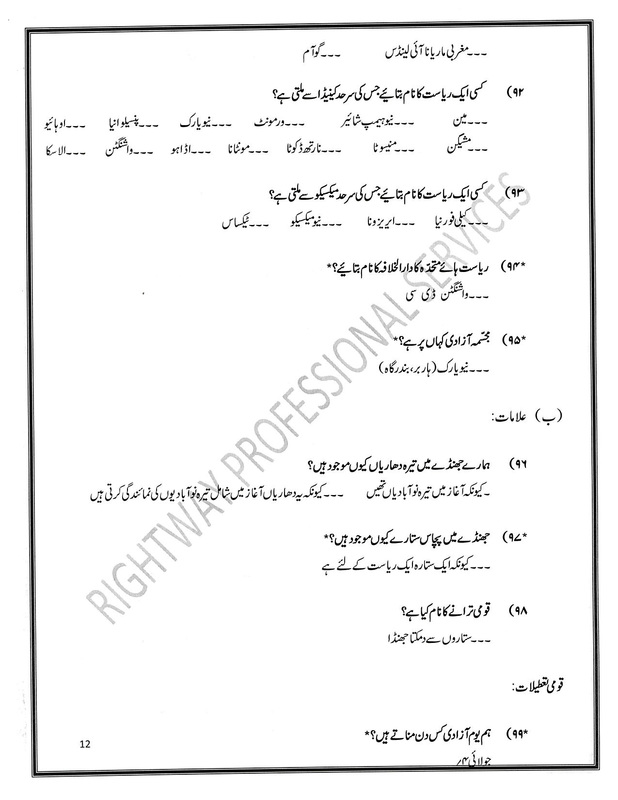 ۔۔۔مغربی ماریانا آئی لینڈس ۔۔۔گوآم
(۹۲ کسی ایک ریاست کا نام بتائیے جس کی سرحد کینیڈا سے ملتی ہے؟
۔۔۔مین ۔۔۔نیو ہیمپ شائیر ۔۔۔ورمونٹ ۔۔۔نیویارک ۔۔۔پنسیلوانیا ۔۔۔اوہائیو
۔۔۔مشیگن ۔۔۔منیسوٹا ۔۔۔نارتھ ڈکوٹا ۔۔۔مونٹانا ۔۔۔اڈاہو ۔۔۔واشنگٹن ۔۔۔الاسکا
(۹۳ کسی ایک ریاست کا نام بتائیے جس کی سرحد میکسیکو سے ملتی ہے؟
۔۔۔کیلی فورنیا ۔۔۔ایریزونا ۔۔۔نیو میکسیکو ۔۔۔ٹیکساس
(۹۴* ریاست ہائے متحدہ کا دارالخلافہ کا نام بتائیے؟*
۔۔۔واشنگٹن ڈی سی
(۹۵* مجسمہ آزادی کہاں پر ہے؟*
۔۔۔نیویارک (ہاربر، بندرگاہ)
(ب) علامات:
(۹۶ ہمارے جھنڈے میں تیرہ دھاریاں کیوں موجود ہیں؟
۔کیونکہ آغاز میں تیرہ نوآبادیاں تھیں ۔۔۔کیونکہ یہ دھاریاں آغاز میں شامل تیرہ نوآبادیوں کی نمائندگی کرتی ہیں
(۹۷* جھنڈے میں پچاس ستارے کیوں موجود ہیں؟*
۔۔۔کیونکہ ایک ستارہ ایک ریاست کے لئے ہے
(۹۸ قومی ترانے کا نام کیا ہے؟
۔۔۔ستاروں سے دمکتا جھنڈا
قومی تعطیلات:
(۹۹* ہم یوم آزادی کس دن مناتے ہیں؟*
جولائی ۴ر
12
RIGHTWAY PROFESSIONAL SERVICES